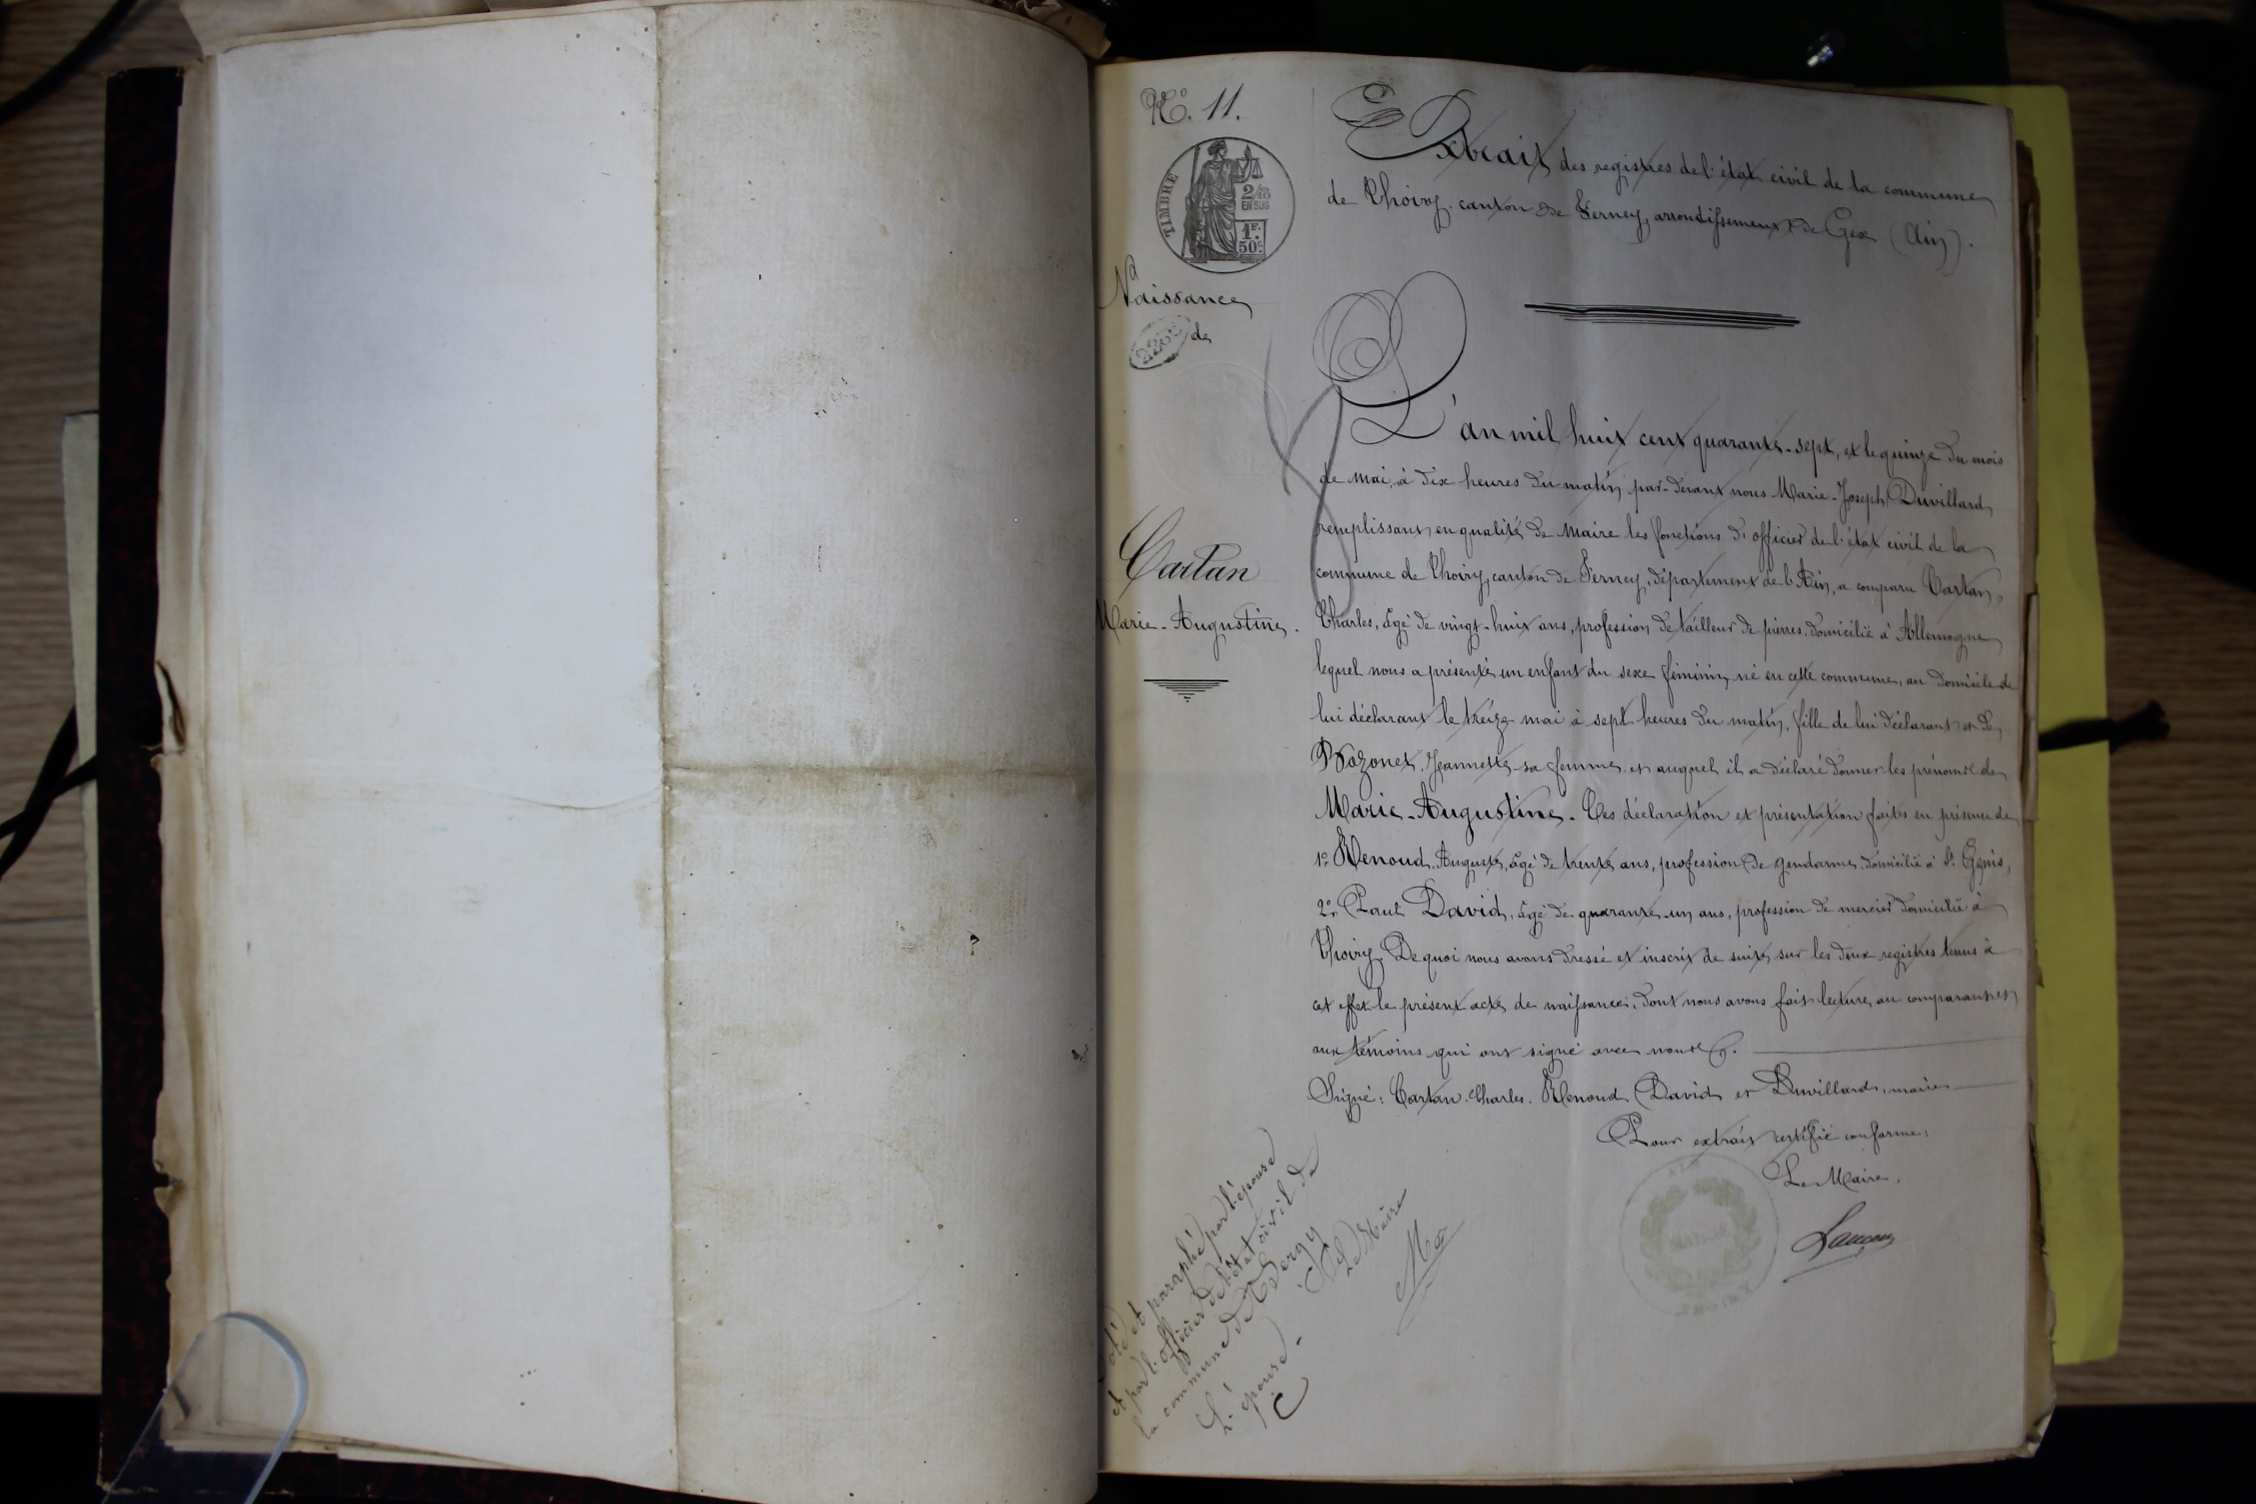 N°. 11.
TIMBRE
2/10
EN SUS
1F.
50c.
Naissance
de
Cartan
Marie-Augustine.
Extrait des registres de l'état civil de la commune
de Thoiry, canton de Ferney, arrondissement de Gex (Ain).
L'an mil huit cent quarante-sept, et le quinze du mois
de mai, à dix heures du matin, par-devant nous Marie-Joseph Duvillard
remplissant en qualité de maire les fonctions d'officier de l'état civil de la
commune de Thoiry, canton de Ferney, département de l'Ain, a comparu Cartan,
Charles, âgé de vingt-huit ans, profession de tailleur de pierres, domicilié à Allemogne
lequel nous a présenté un enfant du sexe féminin, né en cette commune, au domicile de
lui déclarant le treize mai à sept heures du matin, fille de lui déclarant et de
Jeannette sa femme et auquel il a déclaré donner les prénoms de
Marie-Augustine. Ces déclaration et présentation faites en présence de
1° Renoud, Auguste, âgé de trente ans, profession de gendarme, domicilié à St. Genis,
2° Paul David, âgé de quarante-un ans, profession de mercier domicilié à
Thoiry. De quoi nous avons dressé et inscrit de suite, sur les deux registres tenus à
cet effet le présent acte de naissance, dont nous avons fait lecture, au comparant et
aux témoins qui ont signé avec nous.
Signé: Cartan Charles. Renoud, David et Duvillard, maire
Pour extrait certifié conforme:
Le Maire,
Coté et paraphé par l'épouse
et par l'officier de l'état civil de
la commune de
Le Maire
L'épouse